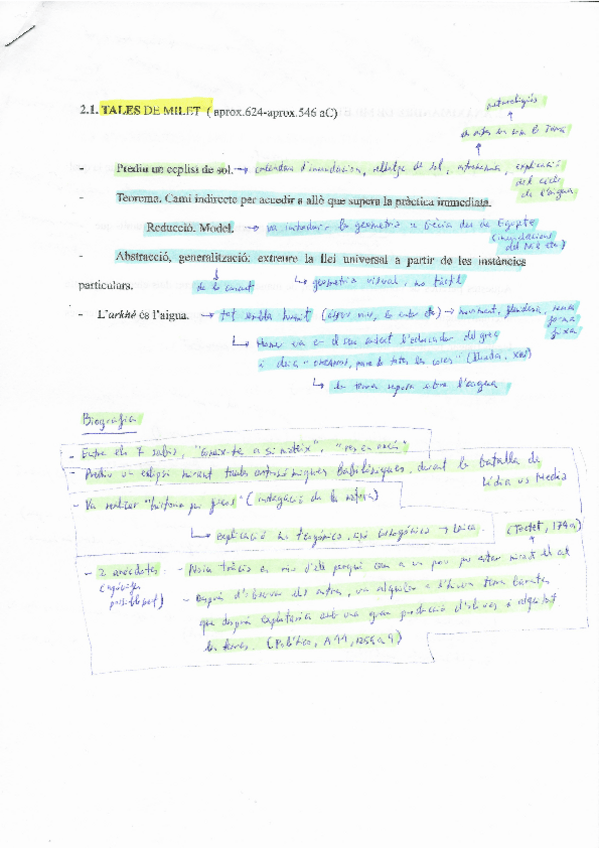 2.1. TALES DE MILET ( aprox.624-aprox.546 aC)
meteorològics
- Prediu un ecpliss de sol. → calendari d'inundacions, rellotge de sol, astronomia, explicació
del cicle
de l'aigua
- Teorema. Camí indirecte per accedir a allò que supera la pràctica immediata.
Reducció. Model. → va introduir la geometria a Grècia des de Egipte
(inundacions
del Nil etc)
- Abstracció, generalització: extreure la llei universal a partir de les instàncies
particulars.
→ geometria visual, no tàctil
- L'arkhé és l'aigua. → tot sembla humit
→ moviment,
sense
forma
fixa
→ Homer va
l'educador del grec
i deia "
totes les coses" (Ilíada, XIV)
→ la terra reposa sobre l'aigua
Biografia
- Entre els 7 savis, "Coneix-te a si mateix", "res en excés"
- Prediu un eclipsi mirant taules astronòmiques Babilòniques, durant la batalla de
Lídia vs Mèdia
- Va realitzar "història peri physeos" (indagació de la natura)
→ explicació no teogónica, sinó cosmogónica → laica.
(Teetet, 174a)
- 2 anècdotes:
(apòcrifes
possiblement)
- Noia tràcia es riu d'ell perquè cau a un pou per estar mirant el cel
- Després d'observar els astres, va
que després explotaria amb una gran producció d'olives i
les terres. (Política, A 11, 1259 a 9)